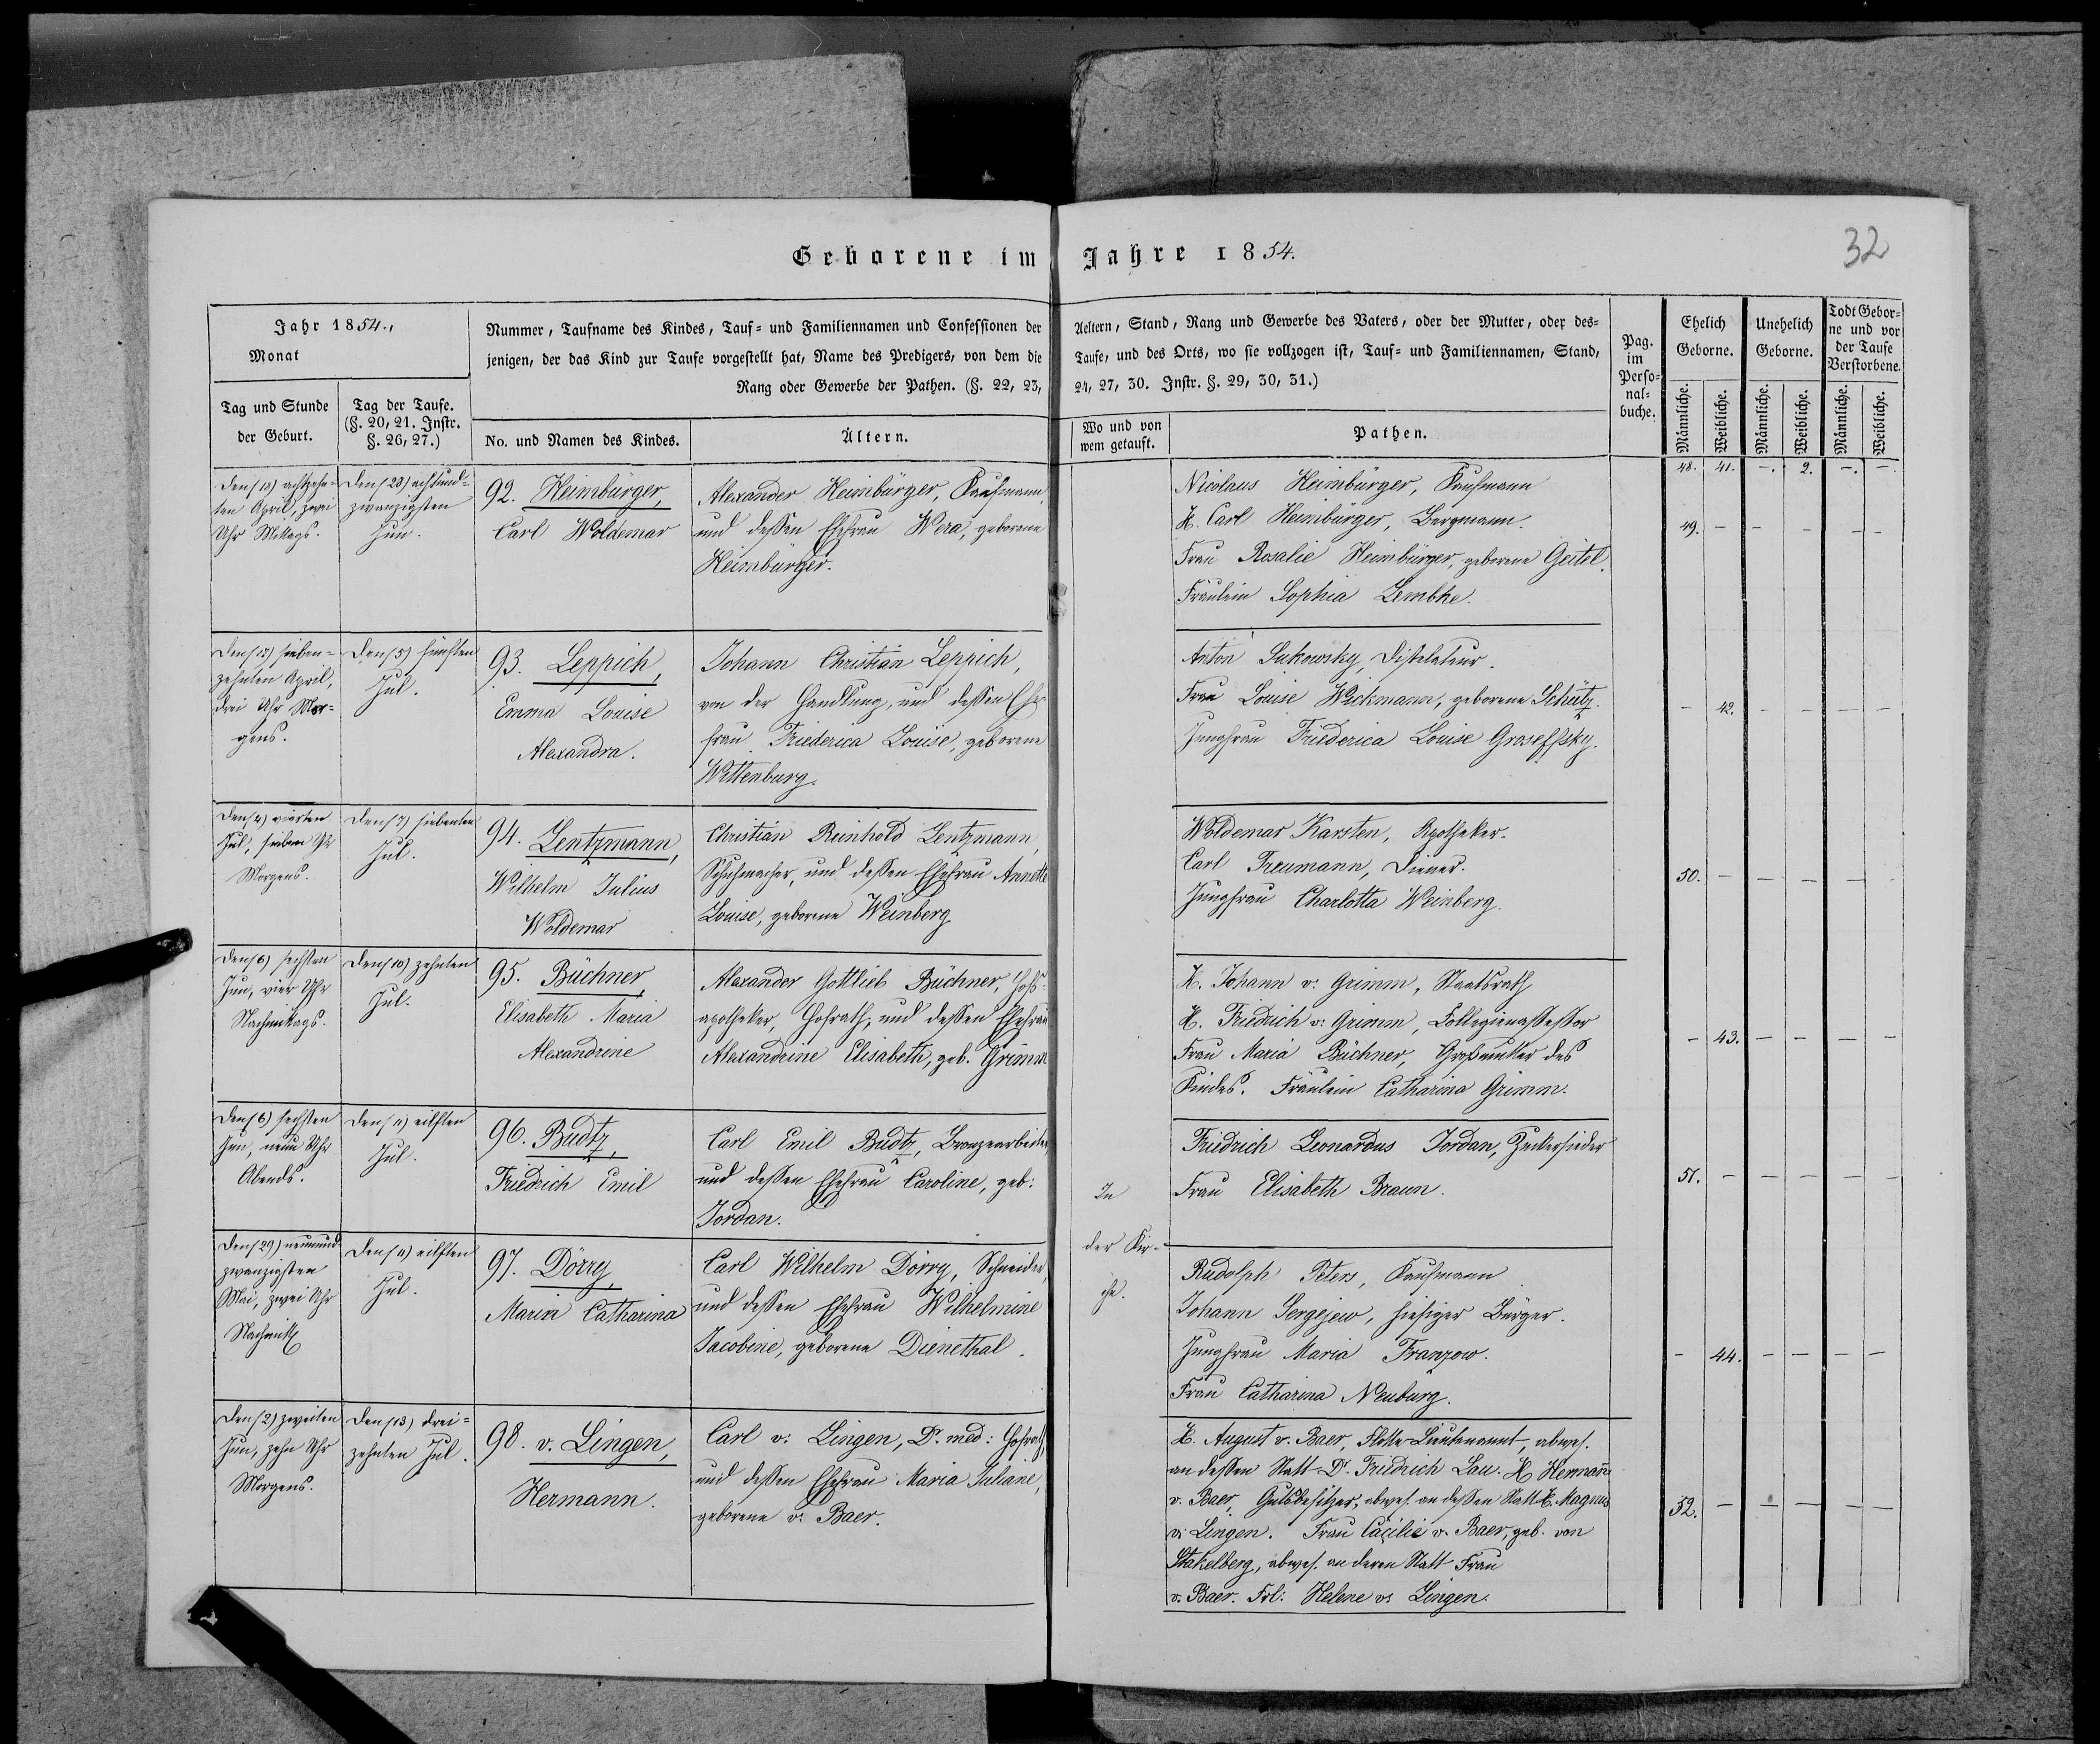 Geborene im Jahre 1854.
32
Jahr 1854.,
Monat
Tag und Stunde
der Geburt.
Tag der Taufe.
(§. 20, 21. Instr.
§. 26, 27.)
Nummer, Taufname des Kindes, Tauf- und Familiennamen und Confessionen der
jenigen, der das Kind zur Taufe vorgestellt hat, Name des Predigers, von dem die
Rang oder Gewerbe der Pathen. (§. 22, 23,
No. und Namen des Kindes.
Ältern.
Aeltern, Stand, Rang und Gewerbe des Vaters, oder der Mutter, oder des-
Taufe, und des Orts, wo sie vollzogen ist, Tauf- und Familiennamen, Stand,
24, 27, 30. Instr. §. 29, 30, 31.)
Wo und von
wem getauft.
Pathen.
Pag.
im
Perso-
nal-
buche.
Ehelich
Geborne.
Unehelich
Geborne.
Todt Gebor-
ne und vor
der Taufe
Verstorbene.
Männliche.
Weibliche.
Männliche.
Weibliche.
Männliche.
Weibliche.
48. 41. —. 2. —. —.
Den (18) achtzehn-
ten April, zwei
Uhr Mittags.
Den (28) achtund-
zwanzigsten
Jun.
92. Heimbürger,
Carl Woldemar
Alexander Heimbürger, Kaufmann,
und dessen Ehefrau Wera, geborene
Heimbürger.
Nicolaus Heimbürger, Kaufmann
H. Carl Heimbürger, Bergmann.
Frau Rosalie Heimbürger, geborene Geitel.
Fräulein Sophia Lembke.
49. — — — — —
Den (17) sieben-
zehnten April,
drei Uhr Mor-
gens.
Den (5) fünften
Jul.
93. Leppich,
Emma Louise
Alexandra.
Johann Christian Leppich,
von der Handlung, und dessen Ehe-
frau Friederica Louise, geborene
Wittenburg.
Anton Sukowsky, Distelateur.
Frau Louise Wickmann, geborene Schütz.
Jungfrau Friederica Louise Groseffsky.
— 42. — — — —
Den (4) vierten
Jul, sieben Uhr
Morgens.
Den (7) siebenten
Jul.
94. Lentzmann,
Wilhelm Julius
Woldemar
Christian Reinhold Lentzmann,
Schuhmacher, und dessen Ehefrau Annette
Louise, geborene Weinberg
Woldemar Karsten, Apotheker.
Carl Treumann, Diener.
Jungfrau Charlotta Weinberg.
50. — — — — —
Den (6) sechsten
Jun, vier Uhr
Nachmittags.
Den (10) zehnten
Jul.
95. Büchner,
Elisabeth Maria
Alexandrine
Alexander Gottlieb Büchner, Hofs-
apotheker, Hofrath, und dessen Ehefrau
Alexandrine Elisabeth, geb. Grimm
H. Johann v. Grimm, Staatsrath
H. Friedrich v. Grimm, Collegienassessor
Frau Maria Büchner, Großmutter des
Kindes. Fräulein Catharina Grimm.
— 43. — — — —
Den (6) sechsten
Jun, neun Uhr
Abends.
Den (11) eilften
Jul.
96. Budtz,
Friedrich Emil
Carl Emil Budtz, Bronzearbeiter
und dessen Ehefrau Caroline, geb.
Jordan.
Friedrich Leonardus Jordan, Zuckersieder
Frau Elisabeth Braun.
51. — — — — —
In
der Kir-
che.
Den (29) neunund-
zwanzigsten
Mai, zwei Uhr
Nachmitt
Den (11) eilften
Jul.
97. Dörry,
Maria Catharina
Carl Wilhelm Dörry, Schneider,
und dessen Ehefrau Wilhelmine
Jacobine, geborene Dienethal.
Rudolph Peters, Kaufmann
Johann Sergejew, hiesiger Bürger.
Jungfrau Maria Franzow.
Frau Catharina Neuburg.
— 44. — — — —
Den (2) zweiten
Jun, zehn Uhr
Morgens.
Den (13) drei-
zehnten Jul.
98. v. Lingen,
Hermann.
Carl v. Lingen, Dr. med: Hofrath
und dessen Ehefrau Maria Juliane,
geborene v. Baer.
H. August v. Baer, Flotte-Lieutenannt, abwes.
an dessen Statt Dr. Friedrich Lau. H Hermann
v. Baer, Gutsbesitzer, abwes. an dessen Statt H. Magnus
v. Lingen. Frau Cäcilie v. Baer, geb. von
Stakelberg, abwes. an deren Statt Frau
v. Baer. Frl: Helene v. Lingen.
52. — — — — —